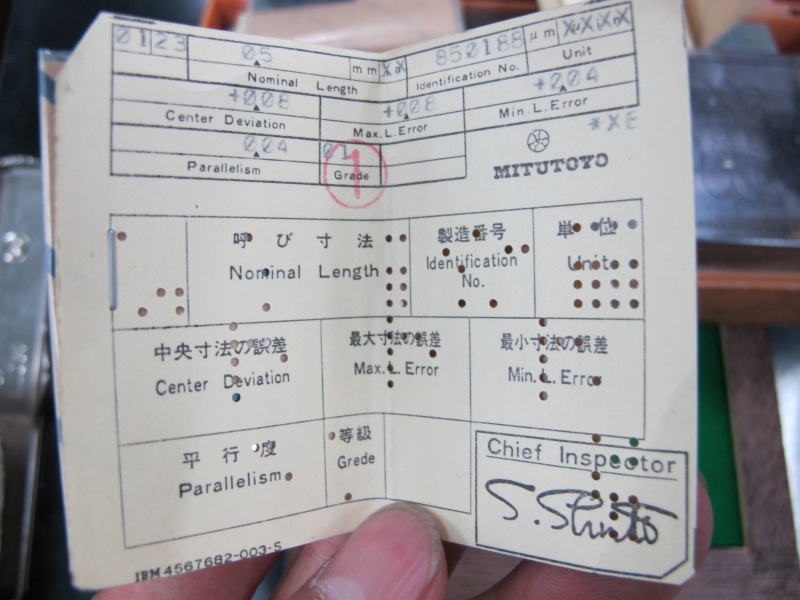 0123 05 mm 850188 μm
Nominal Length Identification No. Unit
+008 +008 +004
Center Deviation Max.L.Error Min.L.Error
004 01 *XE
Parallelism Grade 1
MITUTOYO
呼び寸法 製造番号 単位
Nominal Length Identification No. Unit
中央寸法の誤差 最大寸法の誤差 最小寸法の誤差
Center Deviation Max.L.Error Min.L.Error
平行度 等級
Parallelism Grede
Chief Inspector
S. Shinto
IBM 4567682-003-S